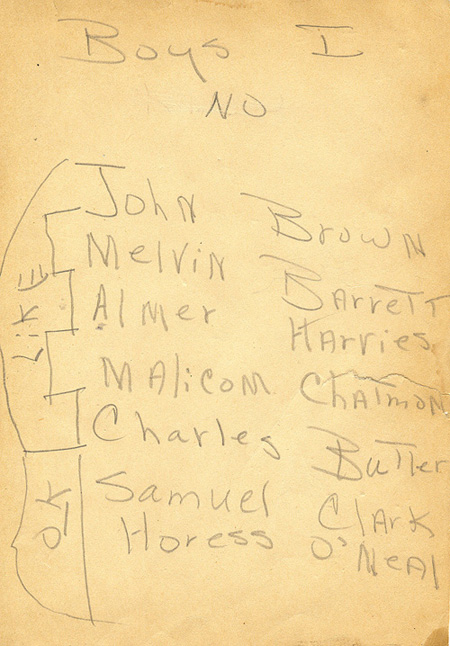 Boys I
NO
John Brown
Melvin Barrett
Almer Harries
Malicom Chatmon
Charles Butler
Samuel Clark
Horess O'Neal
Like
OK